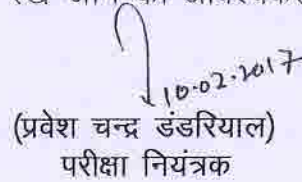 10.02.2017
(प्रवेश चन्द्र डंडरियाल)
परीक्षा नियंत्रक